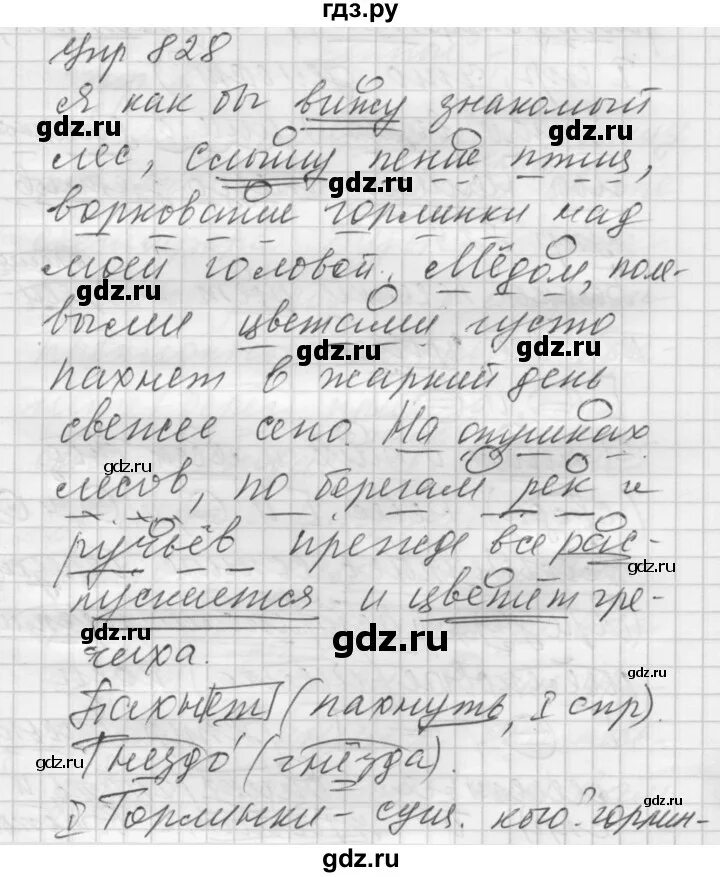 гдз.ру
Упр 828
Я как бы вижу знакомый
gdz.ru gdz.ru
лес, слышу пение птиц,
gdz.ru
воркование горлинки над
моей головой. Мёдом, поле-
gdz.ru gdz.ru
выми цветами густо
gdz.ru gdz.ru
пахнет в жаркий день
свежее сено. На опушках
gdz.ru
лесов, по берегам рек и
gdz.ru
ручьёв прежде все рас-
gdz.ru
пускается и цветёт гре-
gdz.ru gdz.ru
чиха.
gdz.ru
Пахнет (пахнуть, I спр).
gdz.ru
Гнездо (гнёзда).
gdz.ru gdz.ru
I Горлинки - сущ. кого? горлин-
gdz.ru